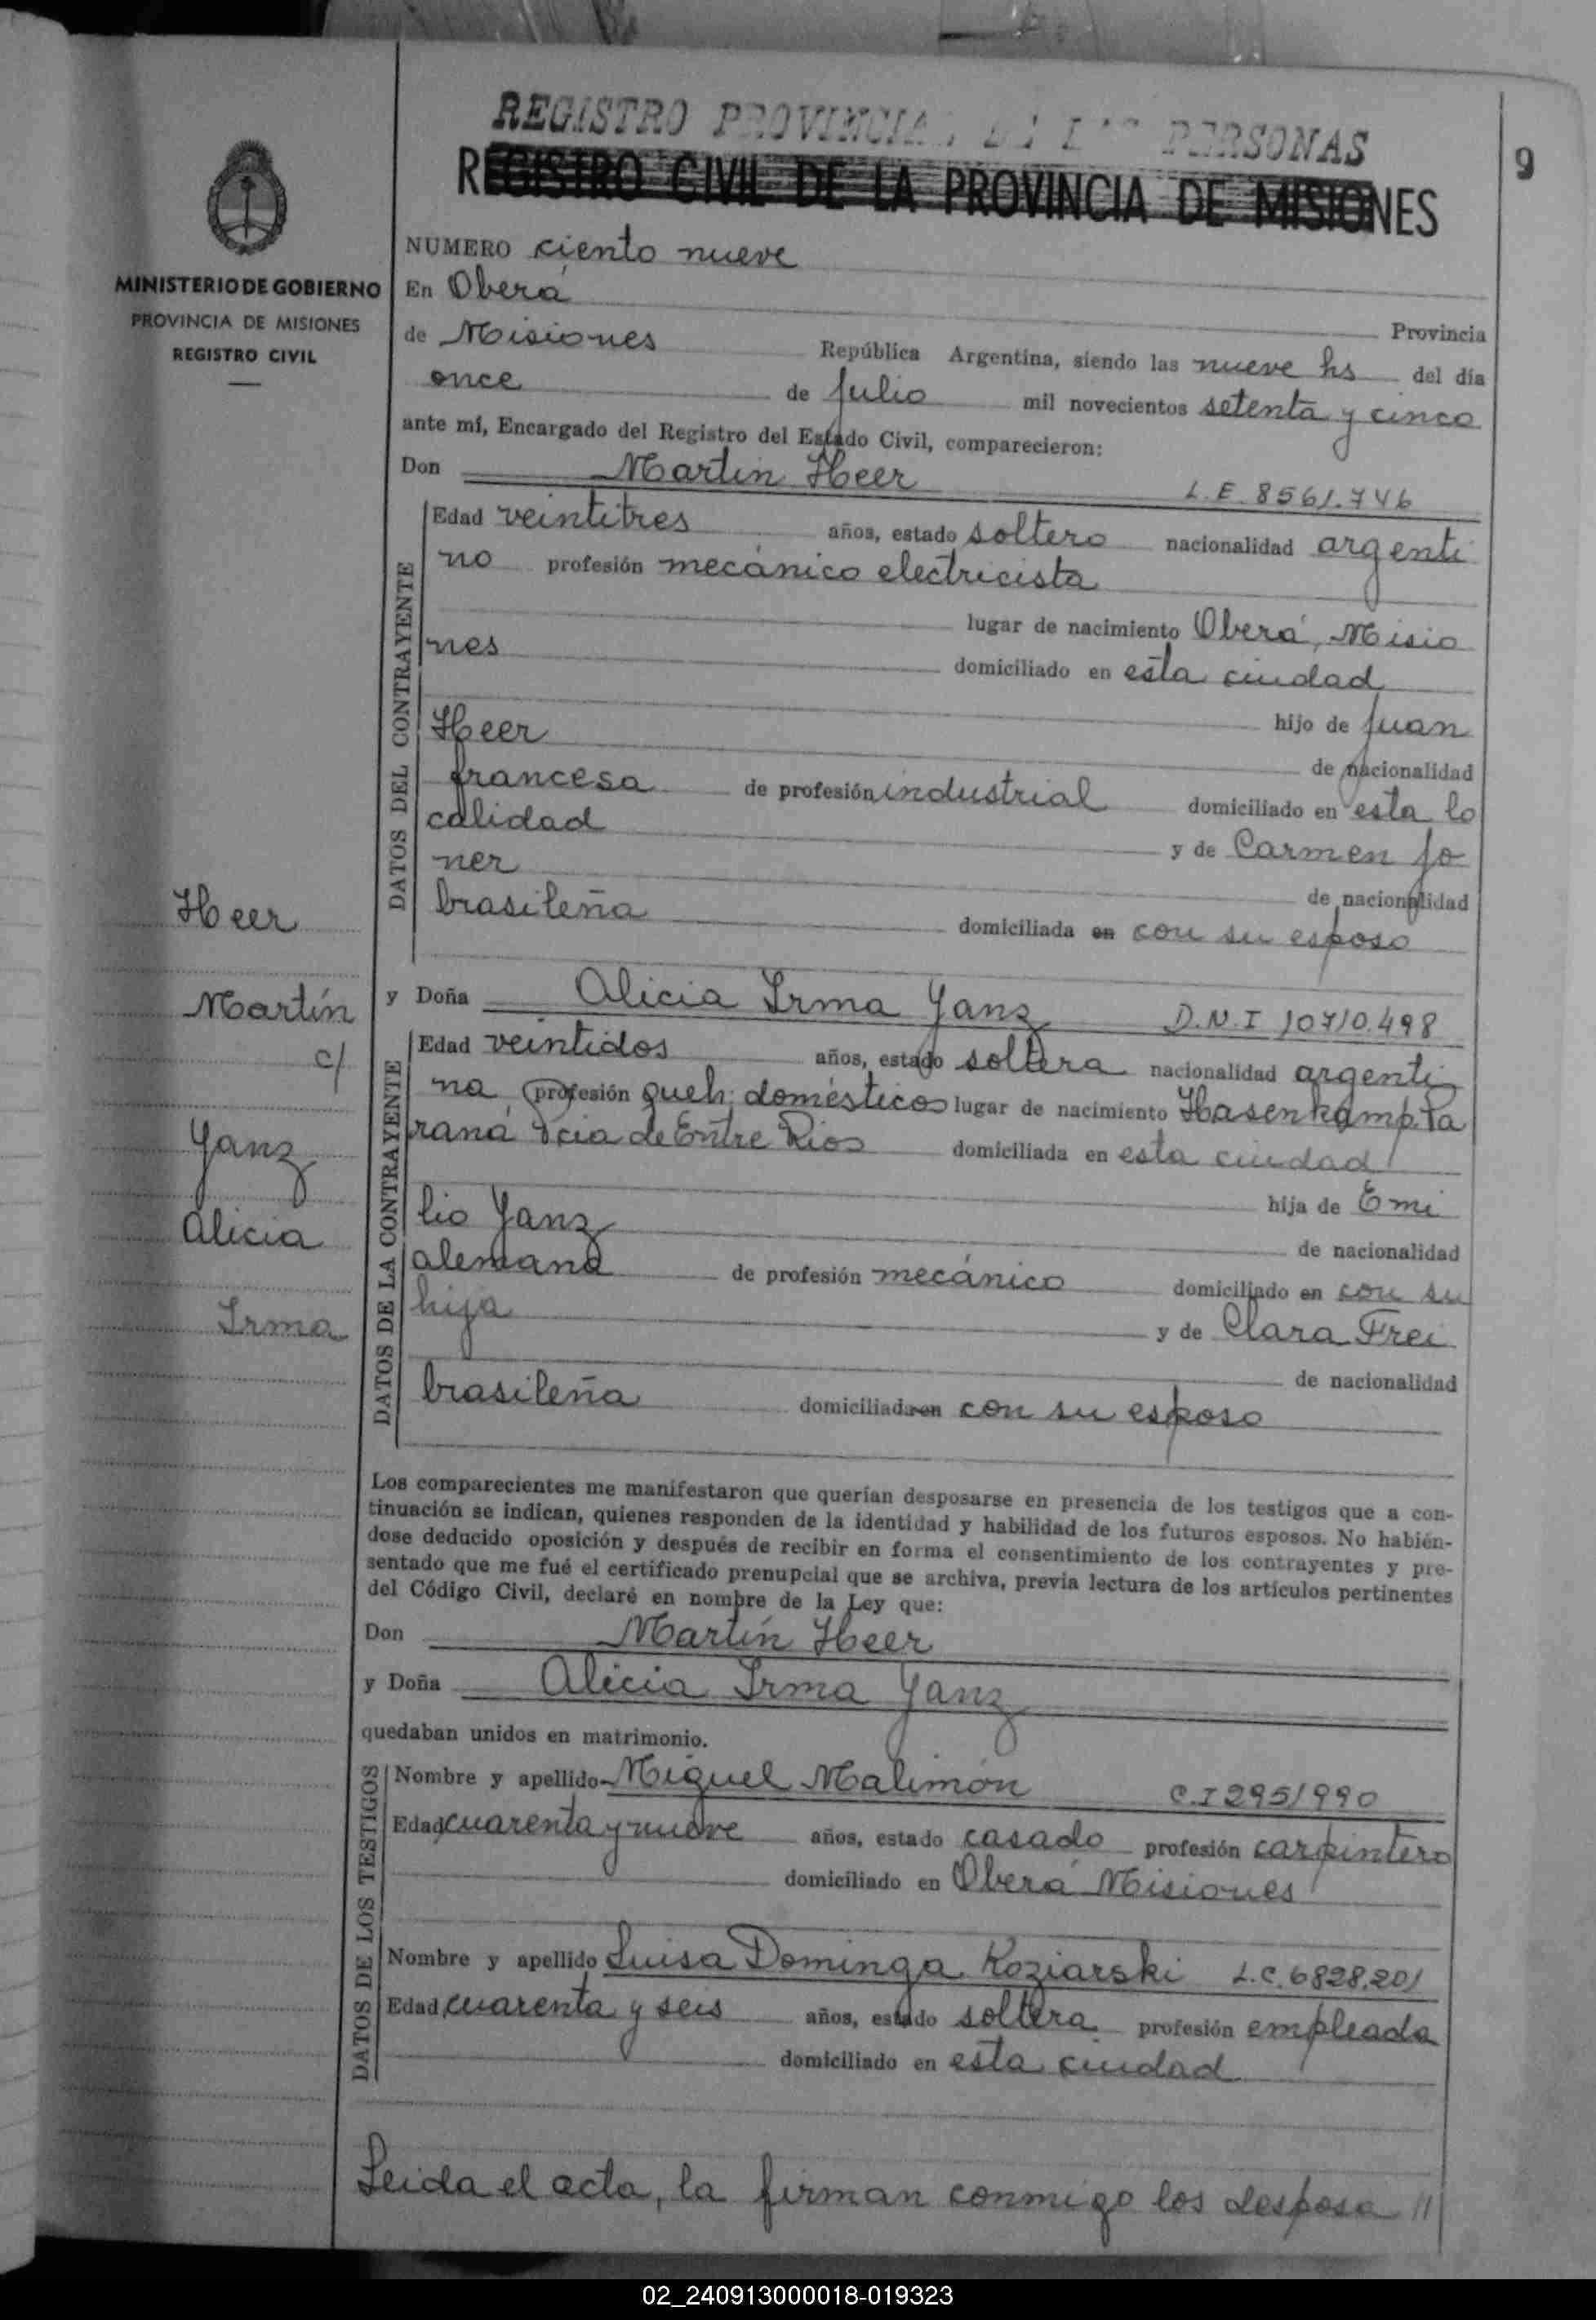 REGISTRO PROVINCIAL DE LAS PERSONAS
REGISTRO CIVIL DE LA PROVINCIA DE MISIONES
9
MINISTERIO DE GOBIERNO
PROVINCIA DE MISIONES
REGISTRO CIVIL
NUMERO ciento nueve
En Oberá Provincia
de Misiones República Argentina, siendo las nueve hs del día
once de julio mil novecientos setenta y cinco
ante mí, Encargado del Registro del Estado Civil, comparecieron:
Don Martin Heer L.E. 8561.746
DATOS DEL CONTRAYENTE
Edad veintitres años, estado soltero nacionalidad argenti
no profesión mecánico electricista
lugar de nacimiento Oberá, Misio
nes domiciliado en esta ciudad
hijo de Juan
Heer de nacionalidad
francesa de profesión industrial domiciliado en esta lo
calidad y de Carmen Jo
ner de nacionalidad
brasileña domiciliada en con su esposo
Heer
Martín
c/
Yanz
Alicia
Irma
y Doña Alicia Irma Yanz D.N.I 10710.498
DATOS DE LA CONTRAYENTE
Edad veintidos años, estado soltera nacionalidad argenti
na profesión queh. domésticos lugar de nacimiento Hasenkamp. Pa
raná Pcia de Entre Rios domiciliada en esta ciudad
hija de Emi
lio Yanz de nacionalidad
alemana de profesión mecánico domiciliado en con su
hija y de Clara Frei
de nacionalidad
brasileña domiciliada en con su esposo
Los comparecientes me manifestaron que querían desposarse en presencia de los testigos que a con-
tinuación se indican, quienes responden de la identidad y habilidad de los futuros esposos. No habién-
dose deducido oposición y después de recibir en forma el consentimiento de los contrayentes y pre-
sentado que me fué el certificado prenupcial que se archiva, previa lectura de los artículos pertinentes
del Código Civil, declaré en nombre de la Ley que:
Don Martín Heer
y Doña Alicia Irma Yanz
quedaban unidos en matrimonio.
DATOS DE LOS TESTIGOS
Nombre y apellido Miguel Malimón C.I 2951990
Edad cuarenta y nueve años, estado casado profesión carpintero
domiciliado en Oberá Misiones
Nombre y apellido Luisa Dominga Koziarski L.C. 6828.201
Edad cuarenta y seis años, estado soltera profesión empleada
domiciliado en esta ciudad
Leida el acta, la firman conmigo los desposa //
02_240913000018-019323